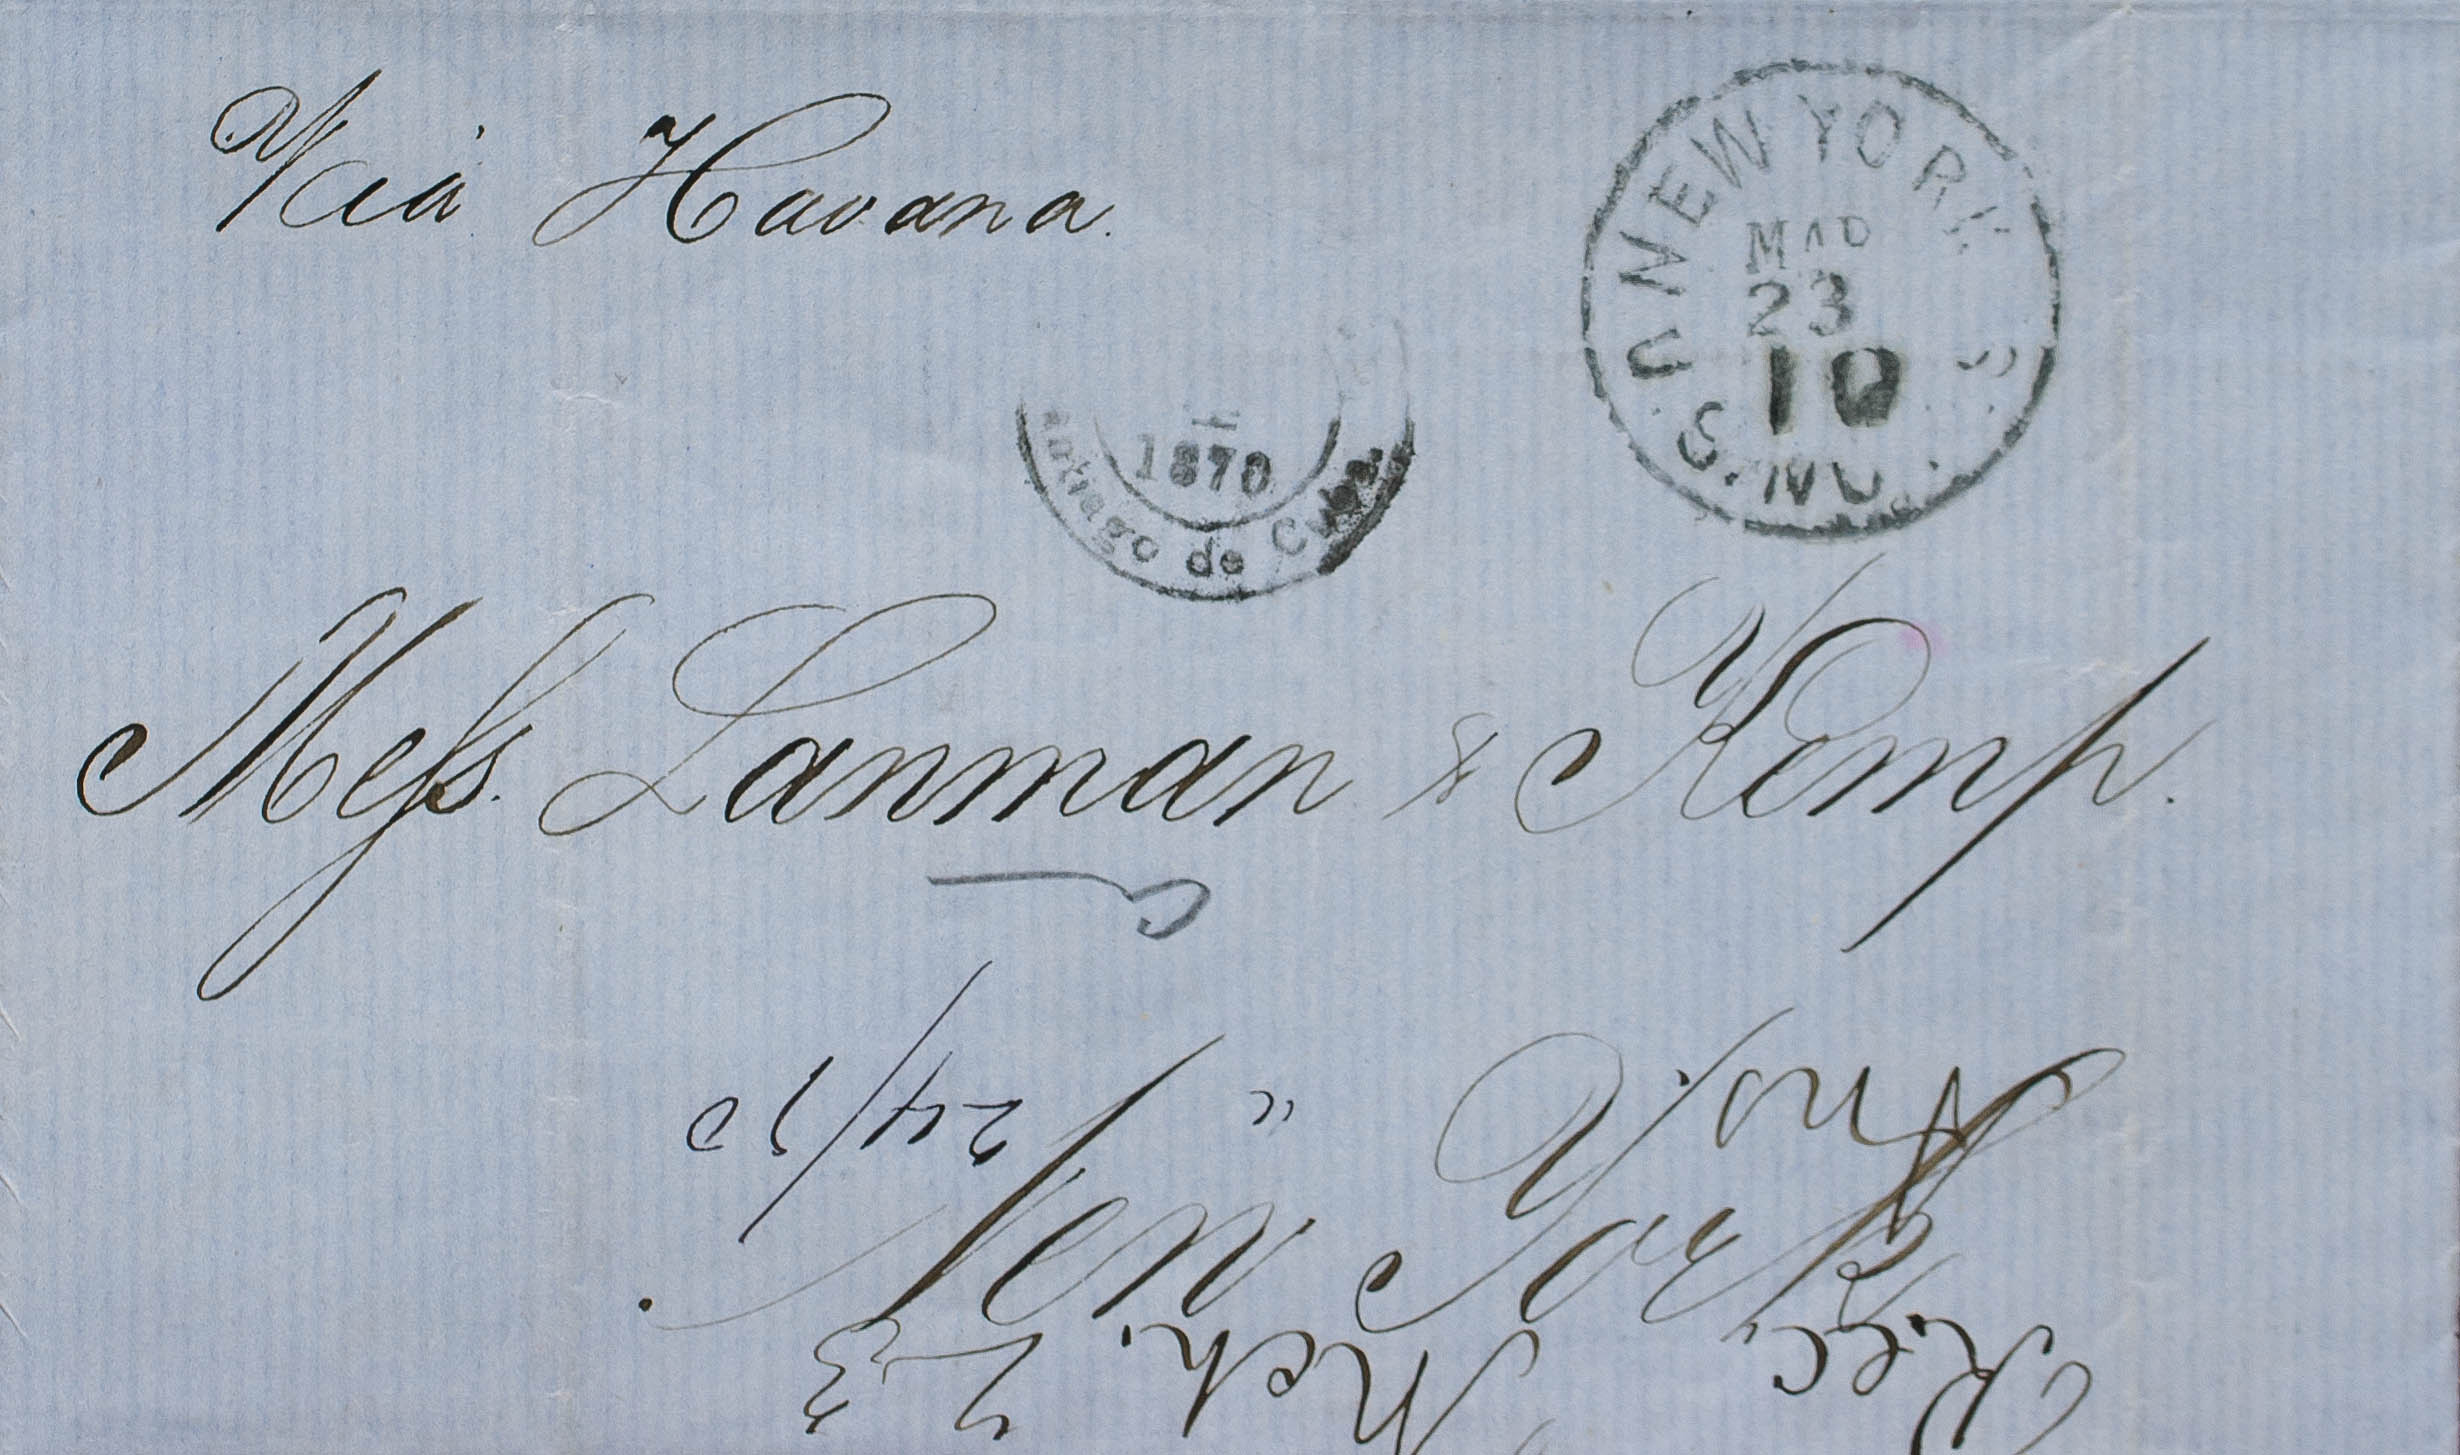 Via Havana.
NEW YORK
MAR
23
10
U.S.
1870
ntiago de Cuba
Mess. Lanman & Kemp.
New York
Rec. Mch. 23
Ans. " 24/70